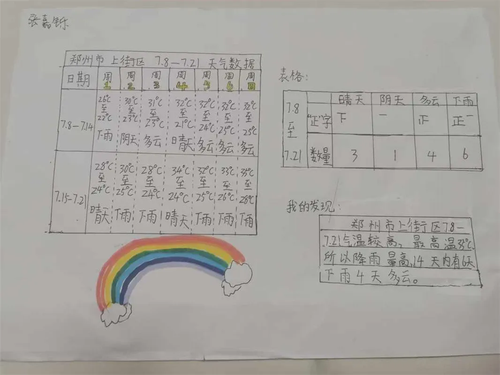 郑州市上街区 7.8—7.21 天气数据
日期 周1 周2 周3 周4 周5 周6 周日
7.8—7.14
26℃至22℃ 下雨
30℃至23℃ 阴天
31℃至23℃ 多云
32℃至21℃ 晴天
32℃至24℃ 多云
32℃至25℃ 多云
至25℃ 多云
7.15—7.21
28℃至24℃ 晴天
30℃至25℃ 下雨
28℃至24℃ 下雨
34℃至25℃ 晴天
至25℃ 下雨
至26℃ 下雨
至28℃ 下雨
表格:
7.8至7.21
晴天 阴天 多云 下雨
"正"字 下 一 正 正一
数量 3 1 4 6
我的发现:
郑州市上街区7.8—
7.21气温较高,最高温35℃
所以降雨量高,14天内有6天
下雨4天多云。